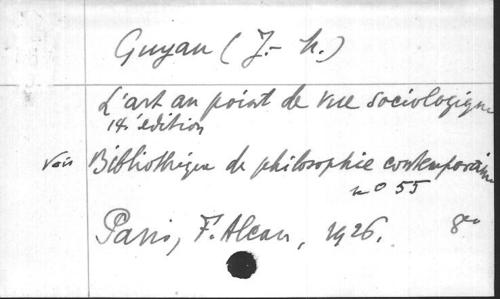 Guyau (J.-M.)
L'art au point de vue sociologique
14e édition
Voir Bibliothèque de philosophie contemporaine
no 55
Paris, F. Alcan, 1926. 8vo